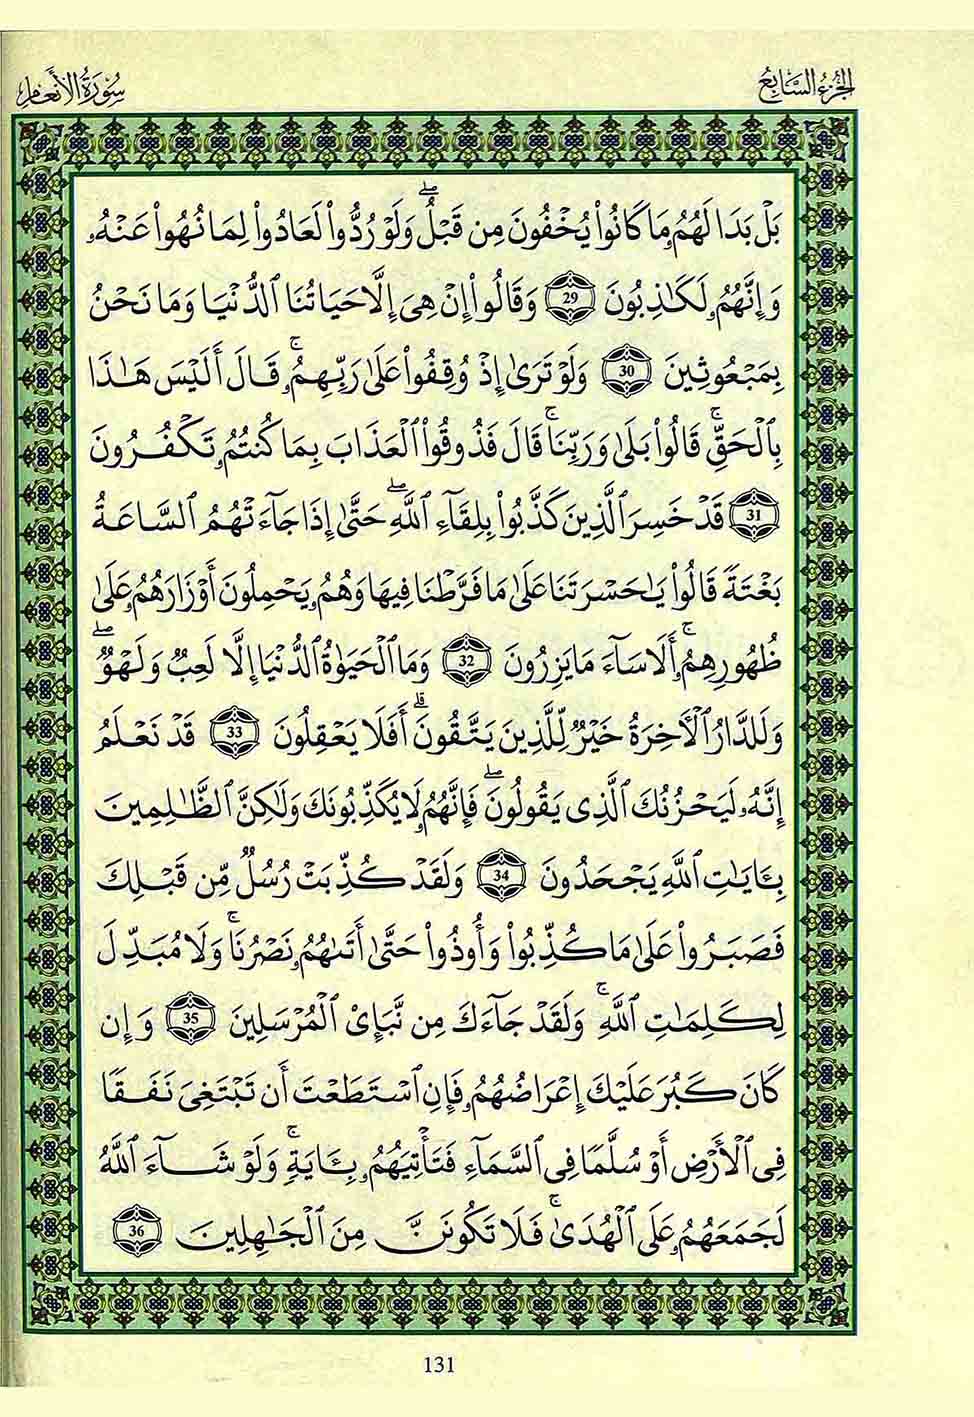 الجزء السابع
سورة الأنعام
بَلْ بَدَا لَهُمُۥ مَا كَانُواْ يُخْفُونَ مِن قَبْلُۖ وَلَوْ رُدُّواْ لَعَادُواْ لِمَا نُهُواْ عَنْهُۥ
وَإِنَّهُمُۥ لَكَـٰذِبُونَ 29 وَقَالُواْ إِنْ هِىَ إِلَّا حَيَاتُنَا ٱلدُّنْيَا وَمَا نَحْنُ
بِمَبْعُوثِينَ 30 وَلَوْ تَرَىٰ إِذْ وُقِفُواْ عَلَىٰ رَبِّهِمُۥۚ قَالَ أَلَيْسَ هَـٰذَا
بِٱلْحَقِّۚ قَالُواْ بَلَىٰ وَرَبِّنَاۚ قَالَ فَذُوقُواْ ٱلْعَذَابَ بِمَا كُنتُمُۥ تَكْفُرُونَ
31 قَدْ خَسِرَ ٱلَّذِينَ كَذَّبُواْ بِلِقَآءِ ٱللَّهِۖ حَتَّىٰ إِذَا جَآءَتْهُمُ ٱلسَّاعَةُ
بَغْتَةً قَالُواْ يَـٰحَسْرَتَنَا عَلَىٰ مَا فَرَّطْنَا فِيهَا وَهُمُۥ يَحْمِلُونَ أَوْزَارَهُمُۥ عَلَىٰ
ظُهُورِهِمُۥۚ أَلَا سَآءَ مَا يَزِرُونَ 32 وَمَا ٱلْحَيَوٰةُ ٱلدُّنْيَا إِلَّا لَعِبٌ وَلَهْوٌۖ
وَلَلدَّارُ ٱلْأَخِرَةُ خَيْرٌ لِّلَّذِينَ يَتَّقُونَۗ أَفَلَا يَعْقِلُونَ 33 قَدْ نَعْلَمُ
إِنَّهُۥ لَيَحْزُنُكَ ٱلَّذِى يَقُولُونَۖ فَإِنَّهُمُۥ لَا يُكَذِّبُونَكَ وَلَـٰكِنَّ ٱلظَّـٰلِمِينَ
بِـَٔايَـٰتِ ٱللَّهِ يَجْحَدُونَ 34 وَلَقَدْ كُذِّبَتْ رُسُلٌ مِّن قَبْلِكَ
فَصَبَرُواْ عَلَىٰ مَا كُذِّبُواْ وَأُوذُواْ حَتَّىٰ أَتَىٰهُمُۥ نَصْرُنَاۚ وَلَا مُبَدِّلَ
لِكَلِمَـٰتِ ٱللَّهِۚ وَلَقَدْ جَآءَكَ مِن نَّبَإِىْ ٱلْمُرْسَلِينَ 35 وَإِن
كَانَ كَبُرَ عَلَيْكَ إِعْرَاضُهُمُۥ فَإِنِ ٱسْتَطَعْتَ أَن تَبْتَغِىَ نَفَقًا
فِى ٱلْأَرْضِ أَوْ سُلَّمًا فِى ٱلسَّمَآءِ فَتَأْتِيَهُمُۥ بِـَٔايَةٍۚ وَلَوْ شَآءَ ٱللَّهُ
لَجَمَعَهُمُۥ عَلَى ٱلْهُدَىٰۚ فَلَا تَكُونَنَّ مِنَ ٱلْجَـٰهِلِينَ 36
131